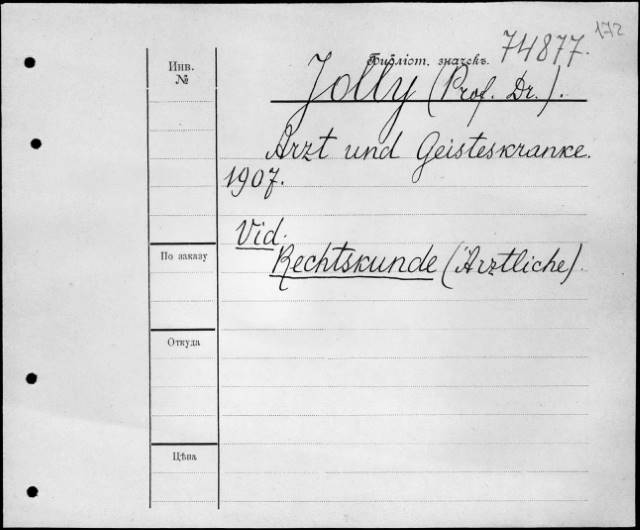 172
Библіот. значекъ. 74877.
Инв.
№
Jolly (Prof. Dr.).
Arzt und Geisteskranke.
1907.
Vid.
Rechtskunde (Ärztliche).
По заказу
Откуда
Цѣна